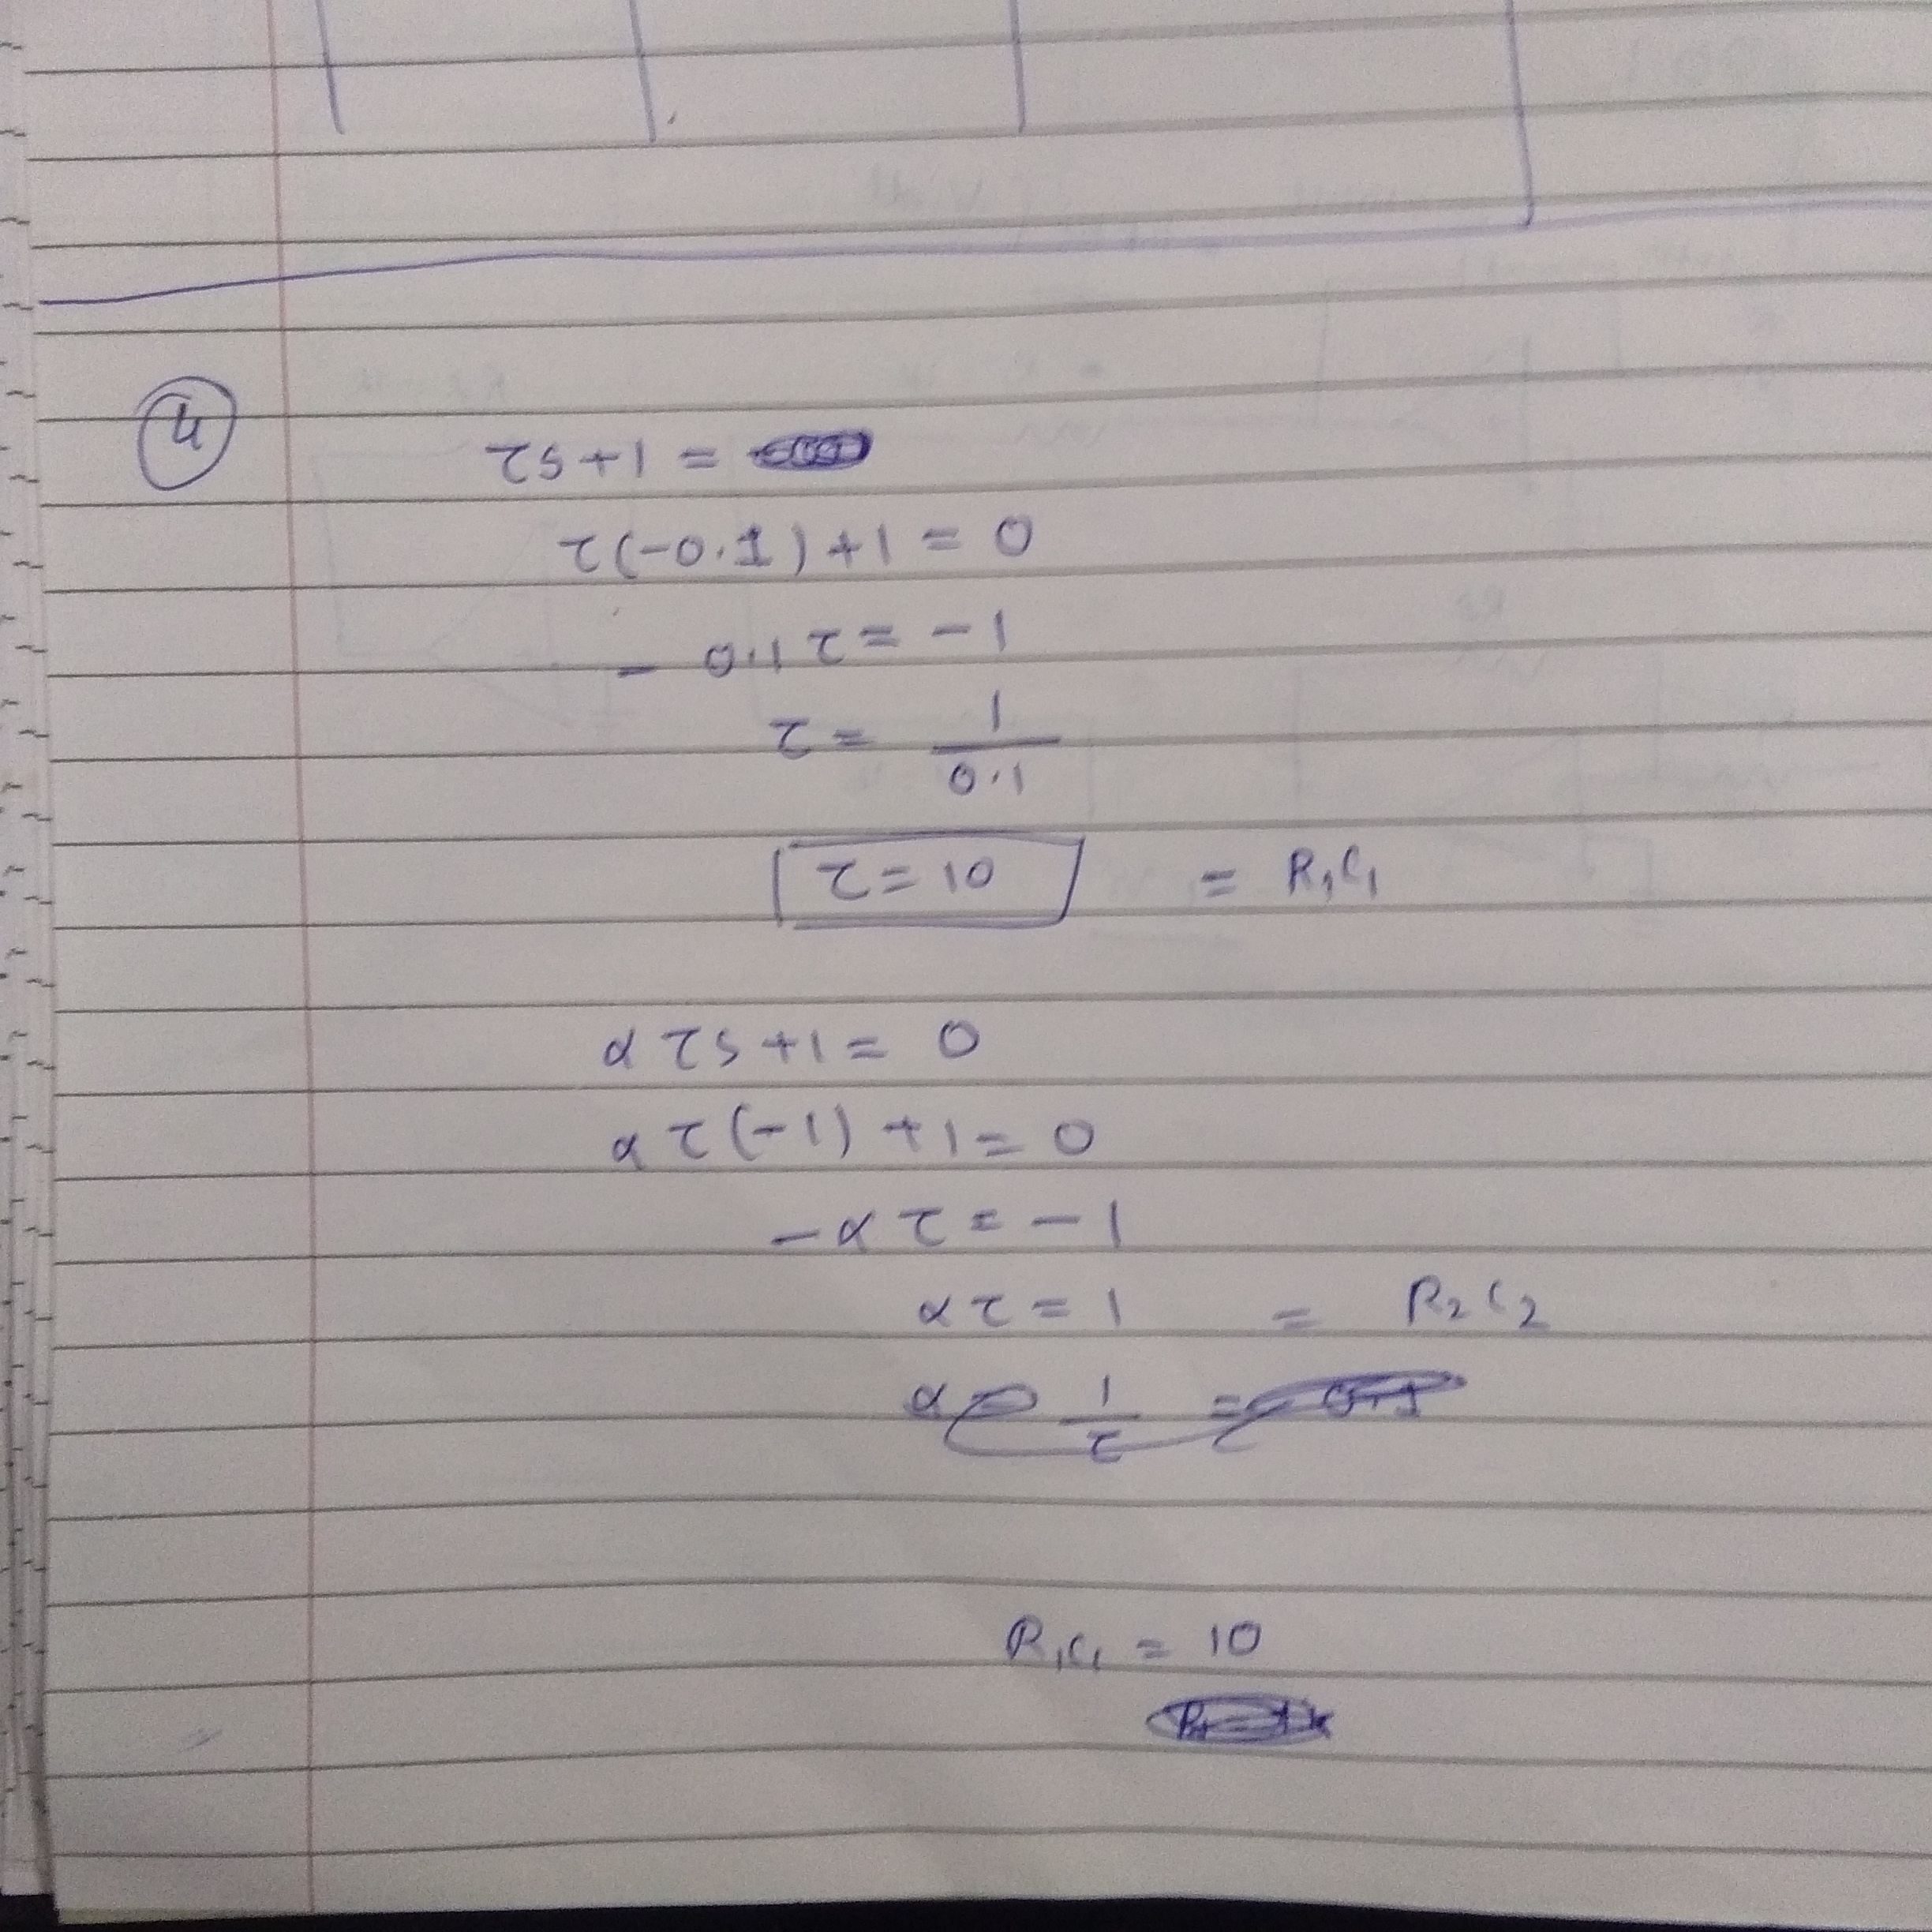 4
τs+1 =
τ(-0.1)+1 = 0
- 0.1 τ = - 1
τ = 1
0.1
τ = 10 = R1C1
α τs +1 = 0
α τ(-1) +1 = 0
-α τ = -1
α τ = 1 = R2C2
α = 1 =
τ
R1C1 = 10